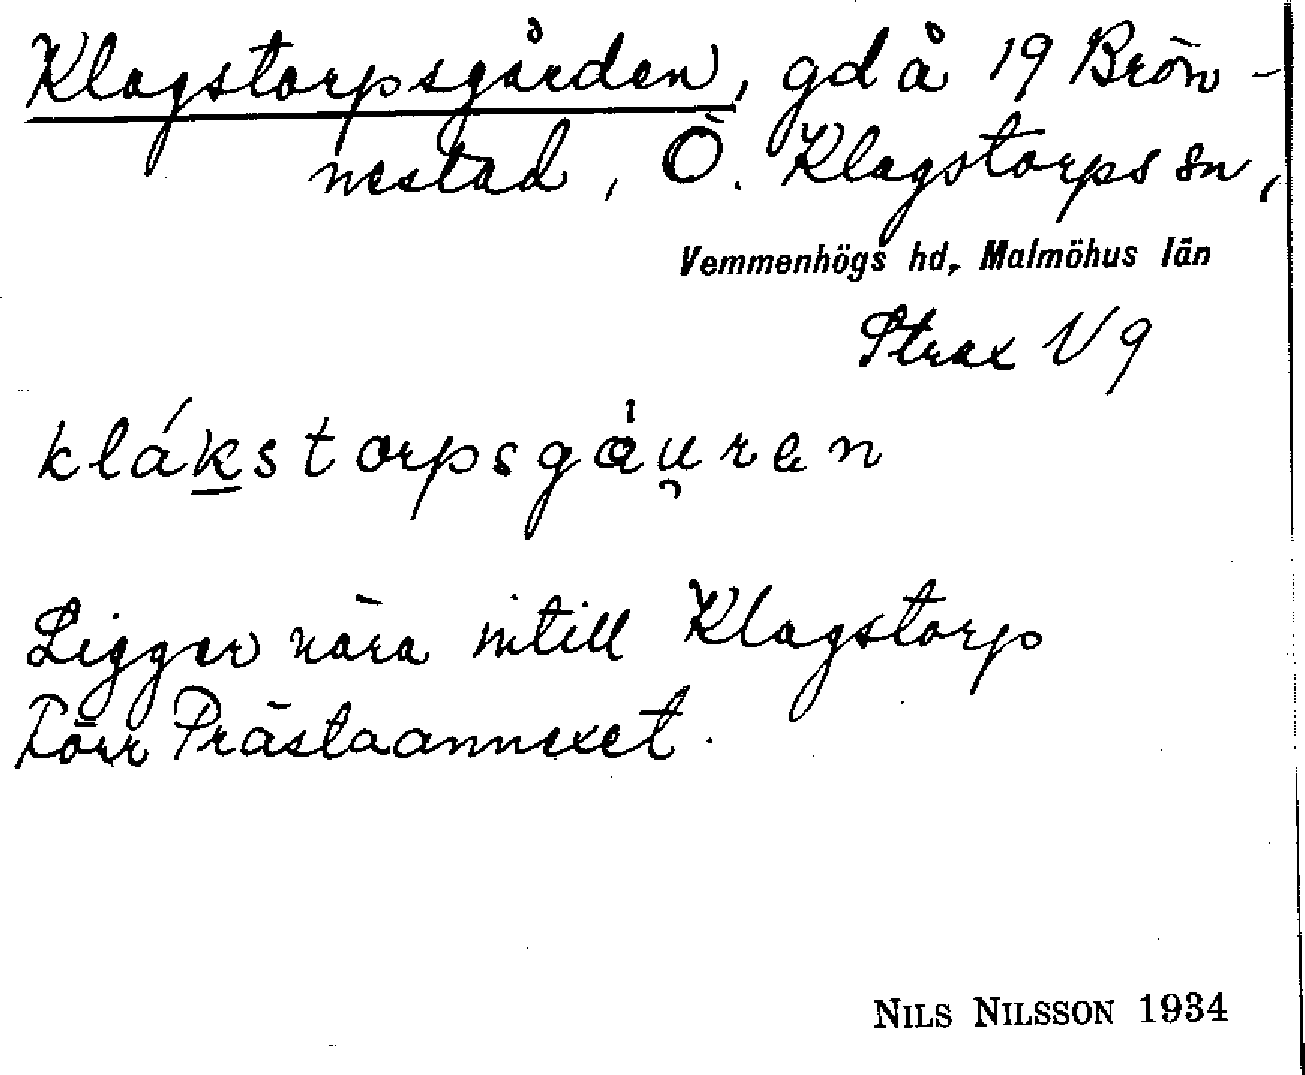 Klagstorpsgården, gd å 19 Brön-
nestad, Ö. Klagstorps sn,
Vemmenhögs hd, Malmöhus län
Strax V 9
klákstorpsgáu̯ren
Ligger nära intill Klagstorp
Förr Prästaannexet.
NILS NILSSON 1934